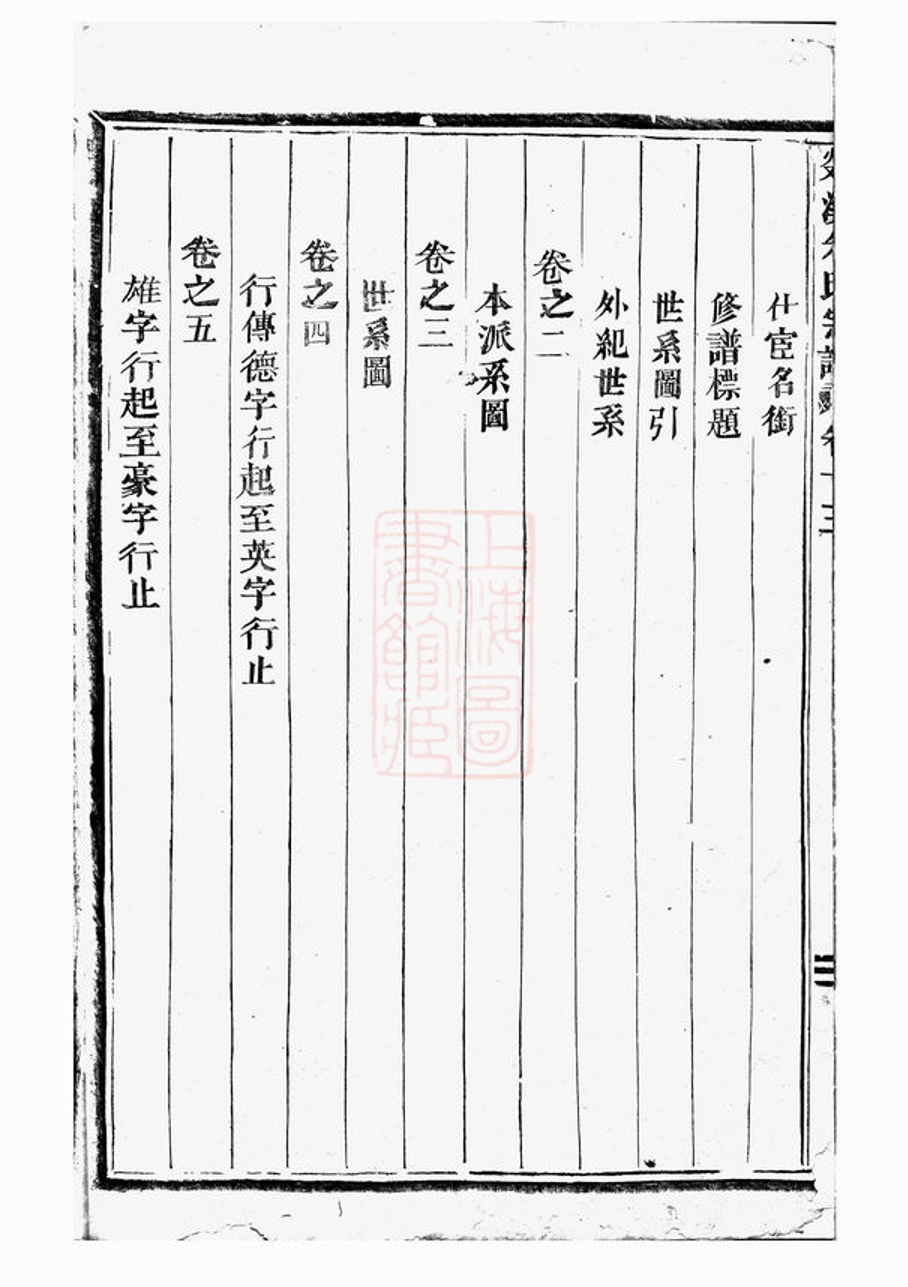 仕宦名銜
修譜標題
世系圖引
外紀世系
卷之二
本派系圖
卷之三
世系圖
卷之四
行傳德字行起至英字行止
卷之五
雄字行起至豪字行止
上海圖
書館藏